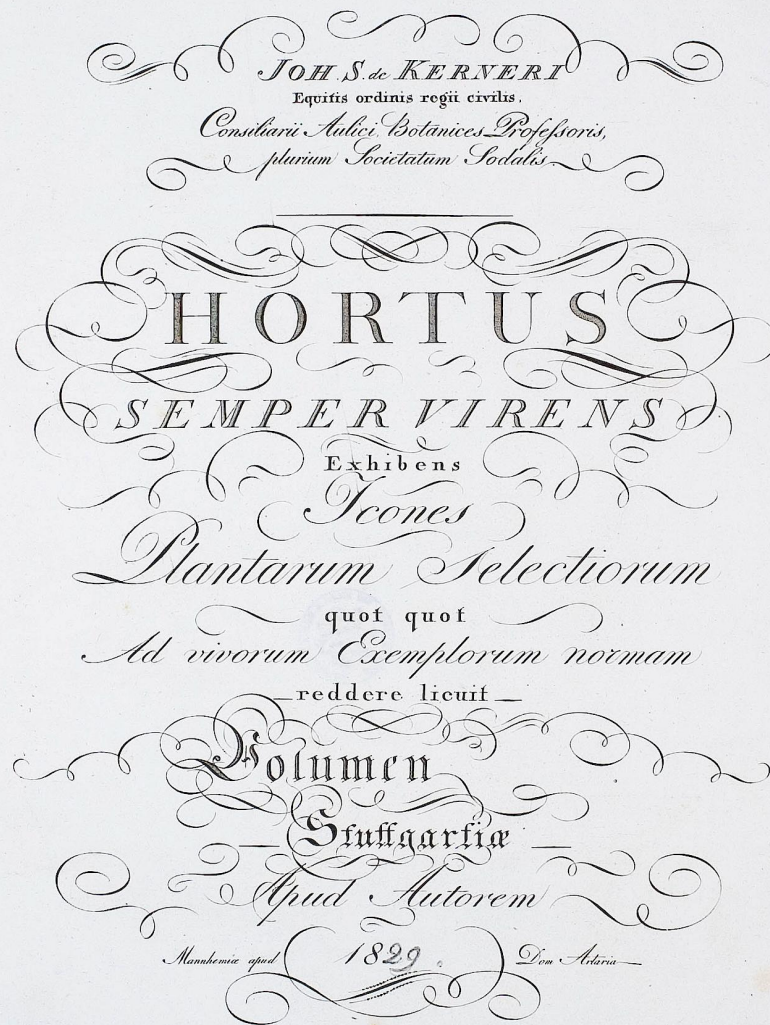 JOH. S. de KERNERI
Equitis ordinis regii civilis,
Consiliarii Aulici, Botanices Professoris,
plurium Societatum Sodalis
HORTUS
SEMPER VIRENS
Exhibens
Icones
Plantarum Selectiorum
quot quot
Ad vivorum Exemplorum normam
reddere licuit
Volumen
Stuttgartiæ
Apud Autorem
Mannhemiæ apud 1829. Dom Artaria